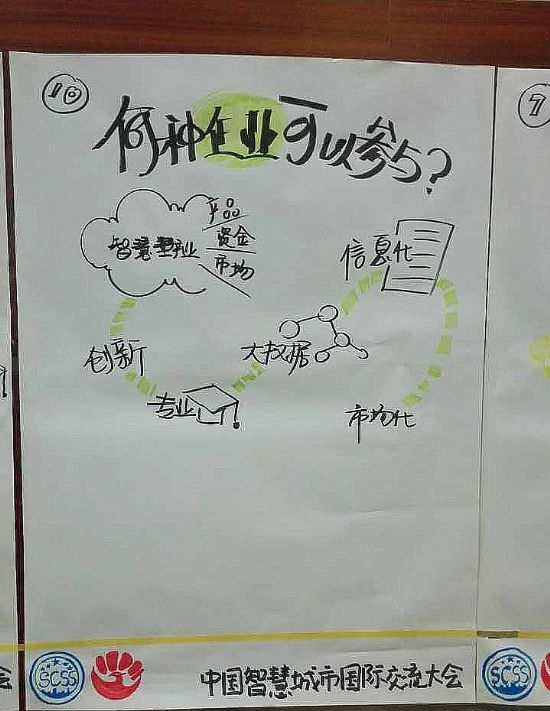 10
何种企业可以参与?
产品
资金
市场
智慧产业
信息化
创新
大数据
专业
市场化
SCSS
中国智慧城市国际交流大会
SCSS
会